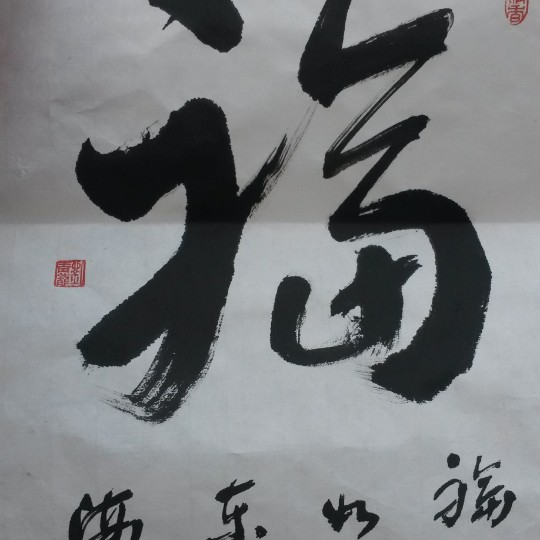 福
福如东海